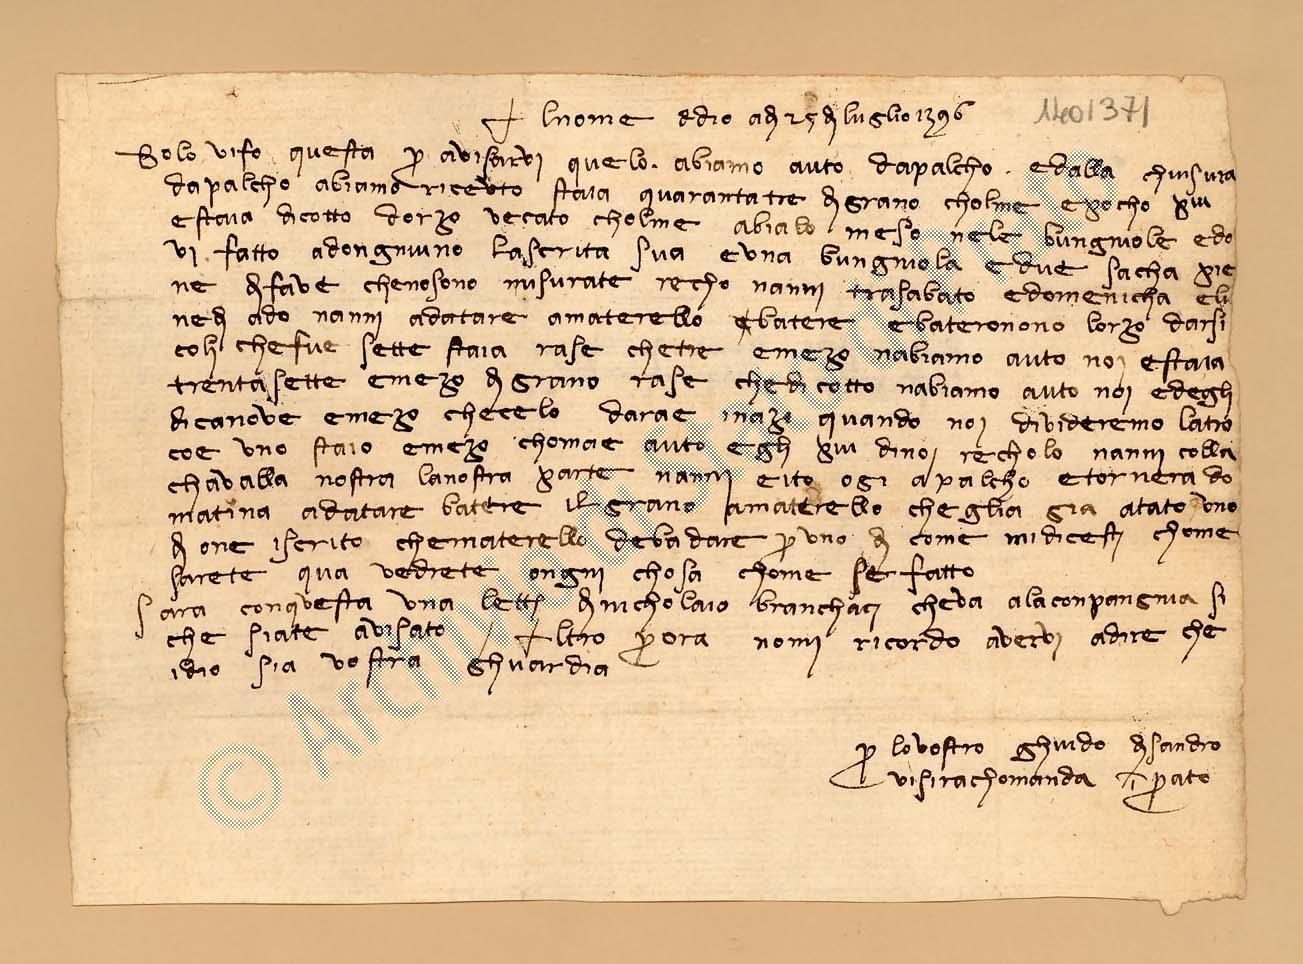 1401371
✝ lnome ddio adi 25 di luglio 1396
Solo vi fo questa p avisarvi quelo abiamo auto dapalcho edalla chiusura
dapalcho abiamo ricevuto staia quarantatre di grano cholme e pocho piu
e staia dicotto dorzo vecato cholme abialo meso nele bungniole edo
vi fatto adongniuno la scrita sua e una bungniola e due sacha pie
ne di fave che nosono misurate recho nanni tra sabato e domenicha e lu
nedi ado nanni adatare a materello batere e bateronono lorzo darsi
coli che fue sette staia rase che tre e mezo nabiamo auto noi e staia
trentasette e mezo di grano rase che dicotto nabiamo auto noi ed egli
dicanove e mezo che celo darae inazi quando noi divideremo latro
coe uno staio e mezo chomae auto egli piu di noi recholo nanni colla
chavalla nostra la nostra parte nanni e ito ogi a palcho e tornera do
matina adatare batere il grano a materello che glia gia atato uno
di one iscrito che materello deba dare p uno di come mi dicesti chome
sarete qua vedrete ongni chosa chome se fatto
sara con questa una lett di nicholaio branchaci che va a la conpangnia si
che siate avisato / Altro p ora nonn ricordo avervi a dire che
idio sia vostra ghuardia
p lo vostro ghuido di sandro
vi si rachomanda i prato
© Archivio di Stato di Prato